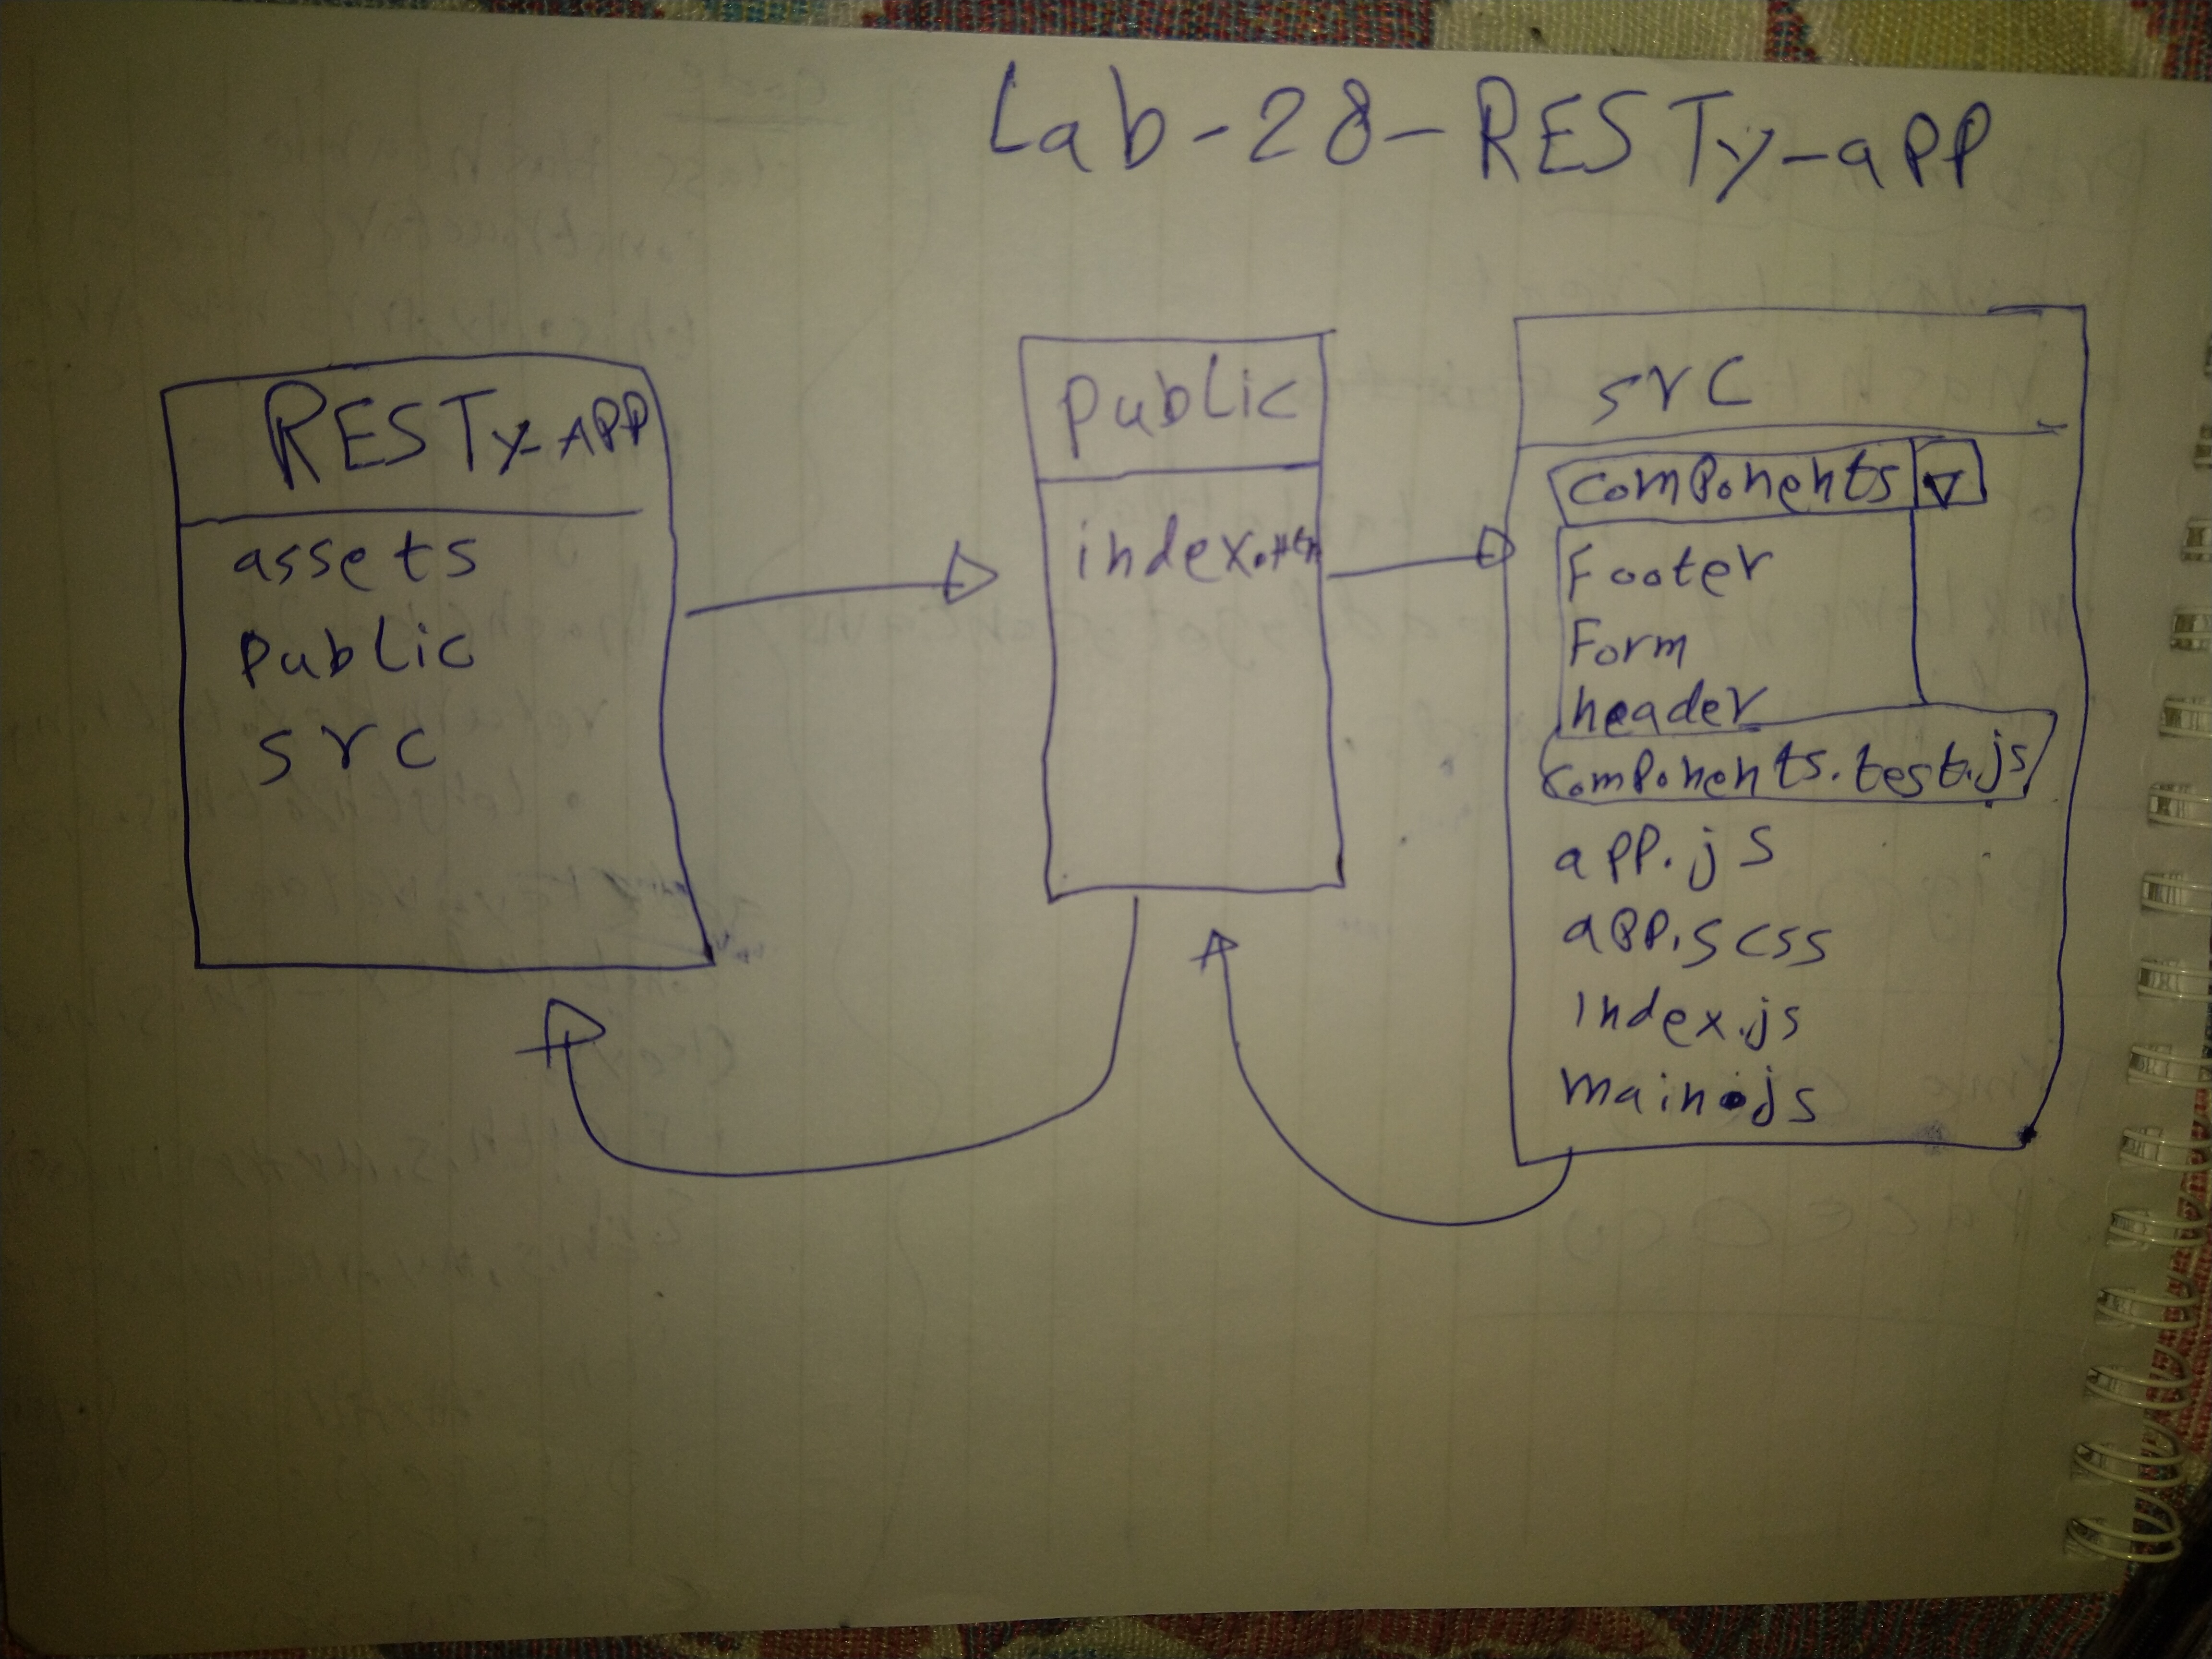 Lab-28-RESTy-app
RESTy-APP
assets
Public
src
Public
src
components
Footer
Form
header
components.test.js
app.js
app.scss
index.js
main.js